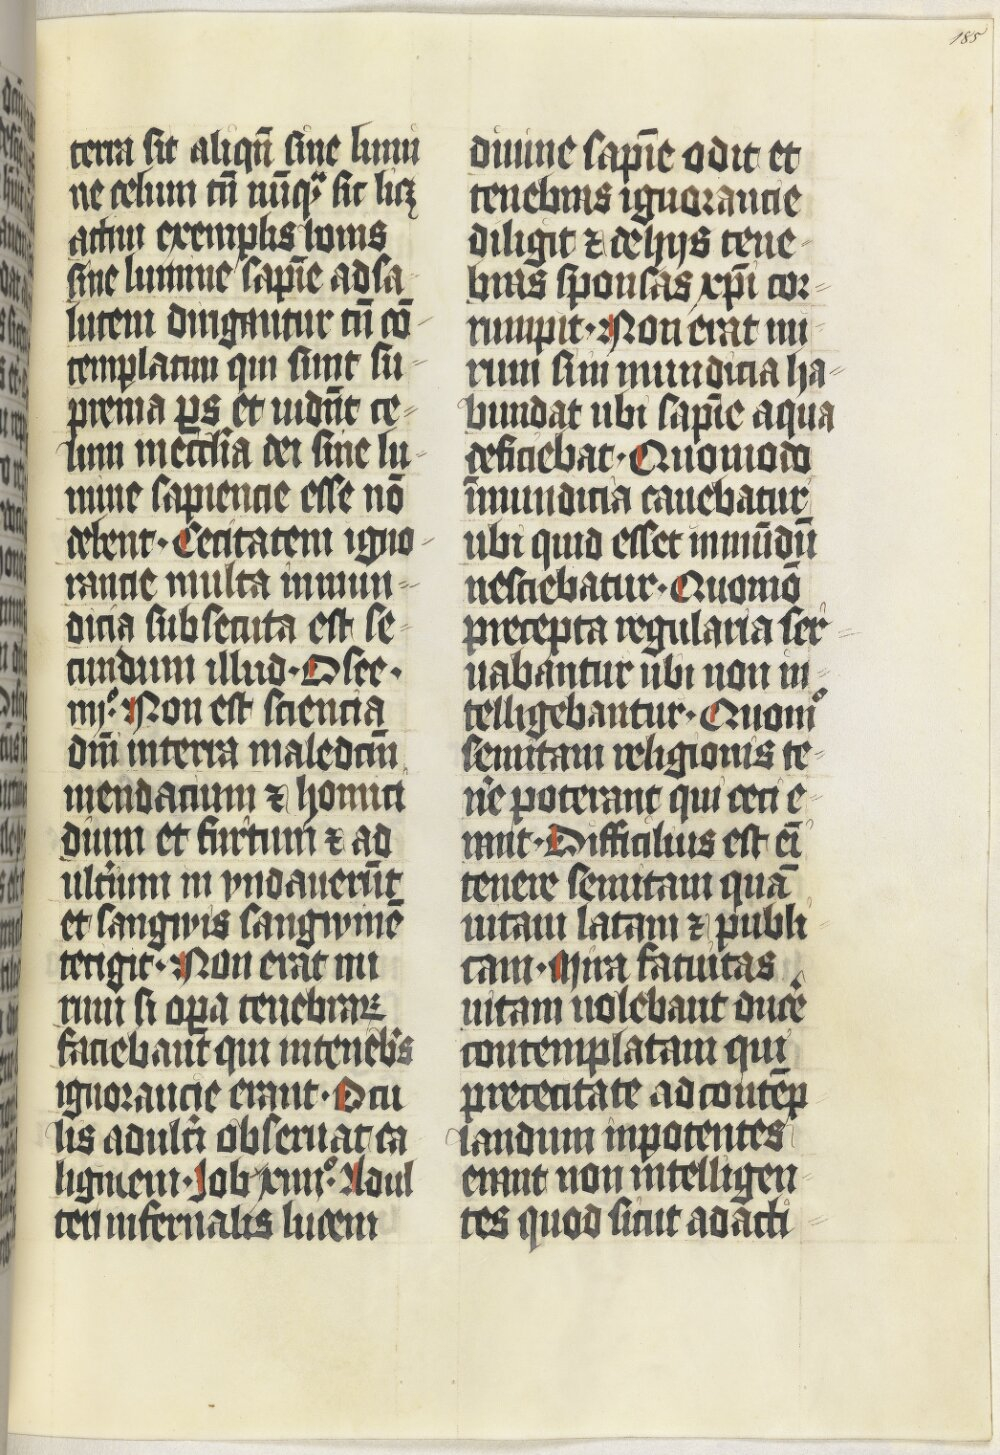 185
terra sit aliqñ sine lumi
ne celum tñ nũqᵃ sit licꝫ
actiui exemplis bonis
sine lumine sapĩe ad sa-
lutem dirigantur tñ cõ-
templatiui qui sunt su-
prema ꝑs et uidñt ce-
lum mẽtis dei sine lu-
mine sapiencie esse nõ
debent· Cecitatem igno-
rancie multa inmun-
dicia subsecuta est se-
cundum illud· Osee·
iiijᵒ· Non est sciencia
dñi in terra maledcm̃
mendacium ⁊ homici
dium et furtum ⁊ ad
ulterium in yndauerũt
et sangwis sangwinẽ
tetigit· Non erat mi
rum si oꝑa tenebraꝝ
faciebant qui in tenebˢ
ignorancie erant· Ocu
lis adulti obseruat ca
liginem· Job xxiiijᵒ· Adul
teri infernalis lucem
diuine sapĩe odit et
tenebras ignorancie
diligit ⁊ de hijs tene-
bras sponsas xp̃i cor-
rumpit· Non erat mi-
rum si in mundicia ha-
bundat ubi sapĩe aqua
deficiebat· Quomodo
ĩmundicia cauebatur
ubi quid esset inmũdũ
nesciebatur· Quomõ
precepta regularia ser-
uabantur ubi non in-
telligebantur· Quomᵒ
semitam religionis te-
ne poterant qui ceci e-
rant· Difficilius est ei
tenere semitam quã
uitam latam ⁊ publi-
cam· Mira fatuitas
uitam uolebant ducẽ
contemplatam qui
pre cecitate ad contẽp
landum inpotentes
erant non intelligen-
tes quod sicut ad acti-